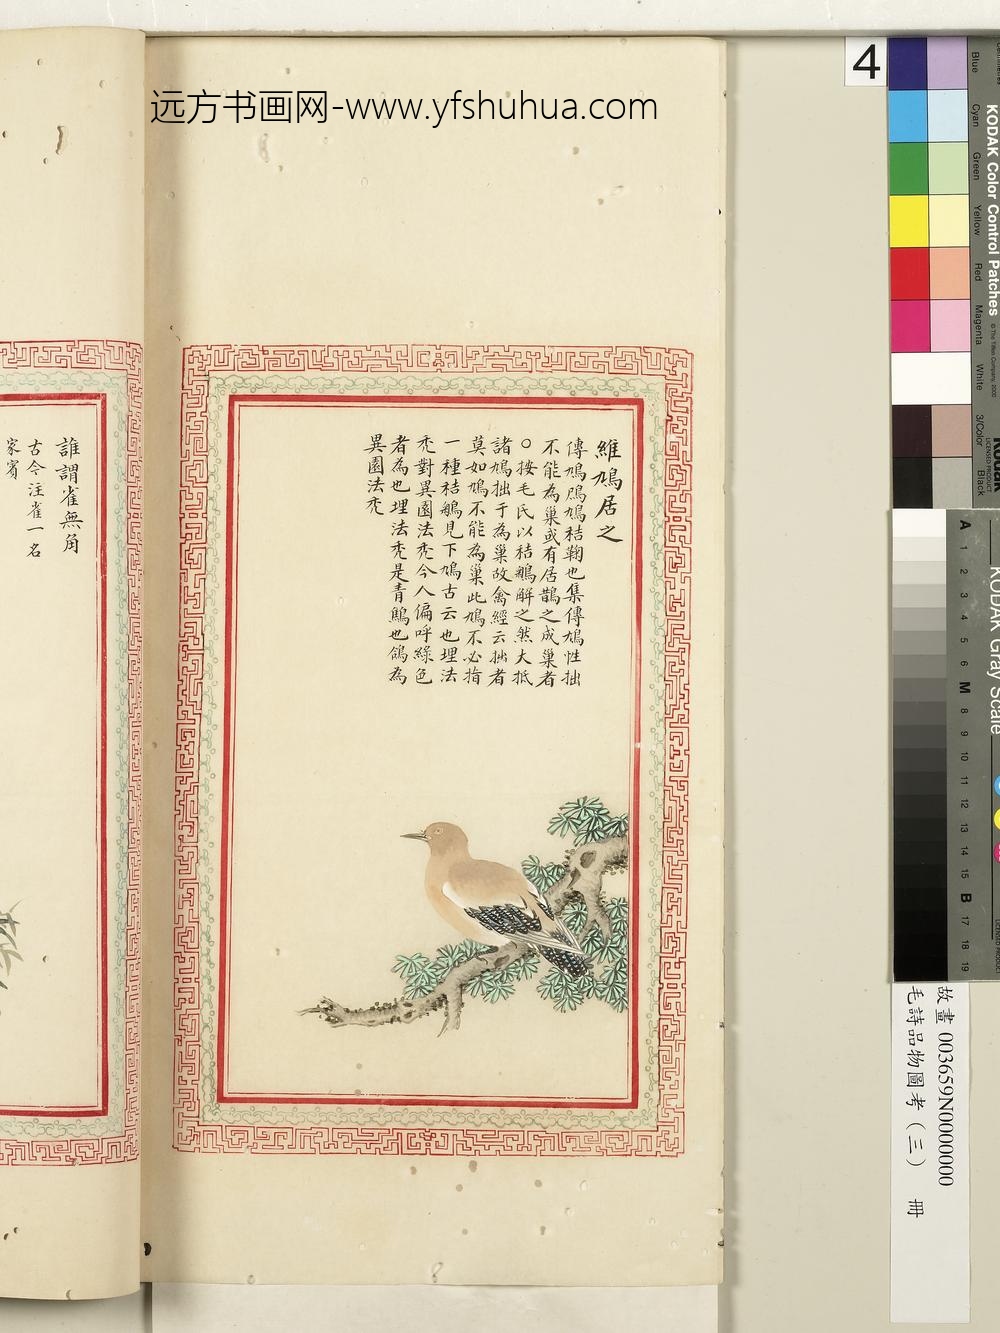 远方书画网-www.yfshuhua.com
維鳩居之
傳鳩鳲鳩秸鞠也集傳鳩性拙
不能為巢或有居鵲之成巢者
○按毛氏以秸鵴解之然大抵
諸鳩拙于為巢故禽經云拙者
莫如鳩不能為巢此鳩不必指
一種秸鵴見下鳩古云也埋法
禿對異國法禿今人偏呼綠色
者為也埋法禿是青鳥也鴿為
異國法禿
誰謂雀無角
古今注雀一名
家賓
4
Blue
Cyan
Green
Yellow
Red
Magenta
White
3/Color
Black
KODAK Color Control Patches
© The Tiffen Company, 2000
Kodak
LICENSED PRODUCT
KODAK Gray Scale
A 1 2 3 4 5 6 M 8 9 10 11 12 13 14 15 B 17 18 19
故畫 003659N0000000
毛詩品物圖考（三） 冊